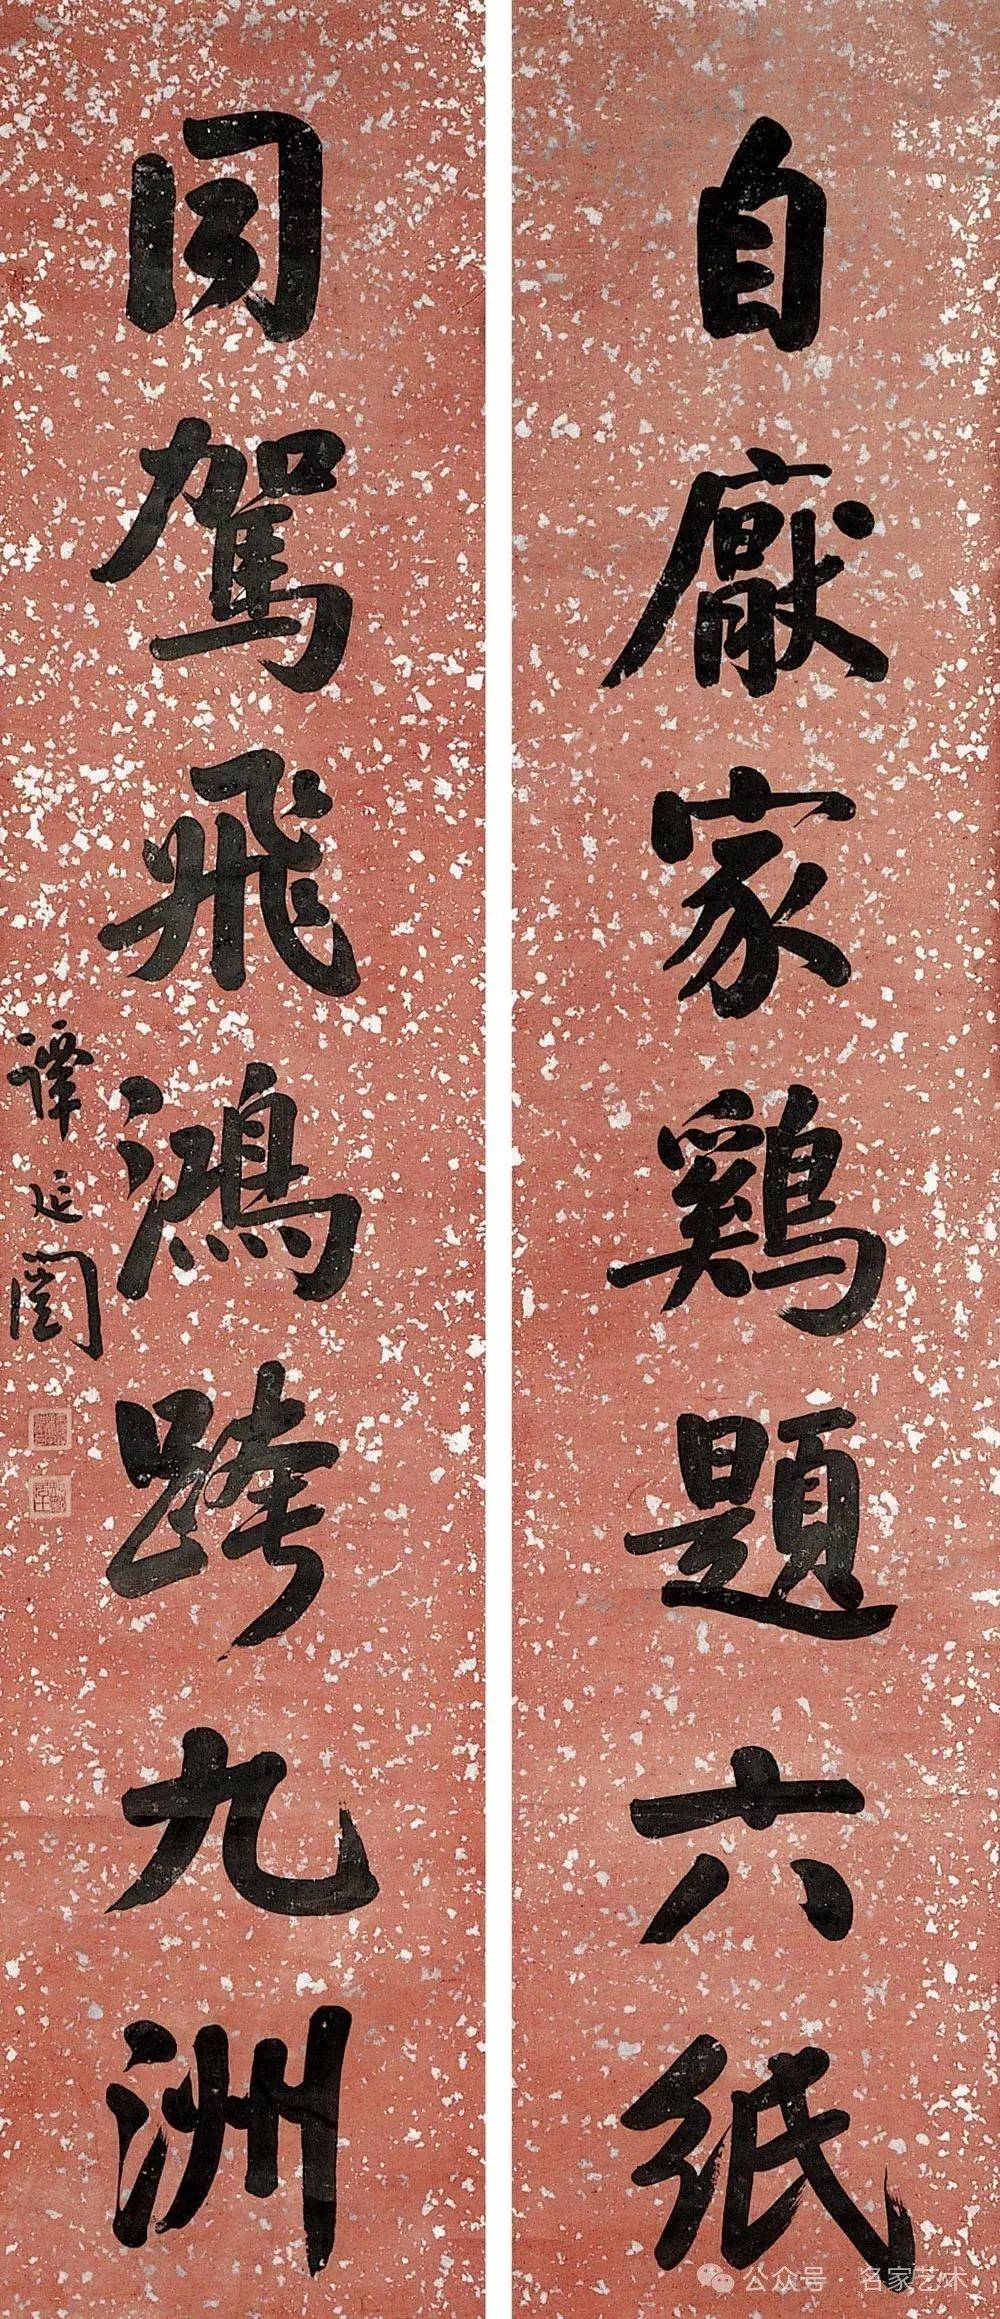 自厭家鷄題六紙
同駕飛鴻跨九洲
譚延闓
公众号 · 名家艺术